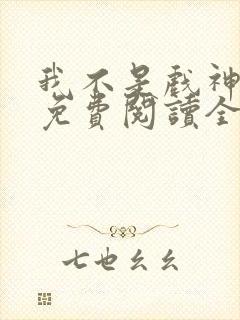 我不是戲神
免費閱讀全
七也幺幺